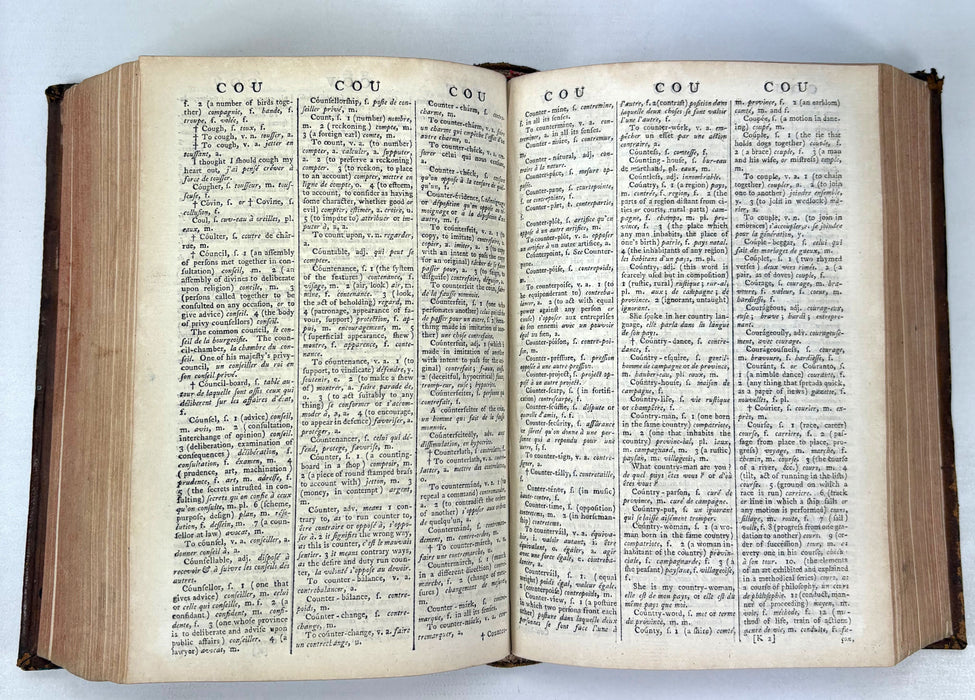 COU
f. 2 (a number of birds toge-
ther) compagnie, f. bande, f.
troupe, f. volée, f.
† Cough, ſ. toux, f.
† To cough, v. n. touſſer, a.
† To cough, v. a. jetter en
touſſant, a.
I thought I ſhould cough my
heart out, j'ai penſé crêver à
force de touſſer.
Cóugher, ſ. touſſeur, m. touſ-
ſeuſe, f.
† Cóvin, ſ. or † Covine, ſ.
colluſion, f.
Coul, ſ. cuveau à oreilles, pl.
eaux, m.
† Cóulter, ſ. coutre de chár-
rue, m.
† Cóuncil, ſ. 1 (an aſſembly
of perſons met together in con-
ſultation) conſeil, m. 2 (an
aſſembly of divines to deliberate
upon religion) concile, m. 3
(perſons called together to be
conſulted on any occaſion, or to
give advice) conſeil. 4 (the body
of privy-counſellors) conſeil.
The common council, le con-
ſeil de la bourgeoiſie. The coun-
cil-chamber, la chambre du con-
ſeil. One of his majeſty's privy-
council, un conſeiller du roi en
ſon conſeil privé.
† Cóuncil-board, ſ. table au-
tour de laquelle ſont aſſis ceux qui
déliberent ſur les affaires d'état,
f.
Cóunſel, ſ. 1 (advice) conſeil,
m. avis, m. 2 (conſultation,
interchange of opinion) conſeil.
3 (deliberation, examination of
conſequences) délibération, f.
conſultation, f. examen, m. 4
(prudence, art, machination)
prudence, f. art, m. adreſſe, f.
5 (the ſecrets intruſted in con-
ſulting) ſecrets qu'on confie à ceux
qu'on conſulte, m. pl. 6 (ſcheme,
purpoſe, deſign) plan, m. réſo-
lution, f. deſſein, m. 7 (a coun-
ſellor at law) avocat, m.
To cóunſel, v. a. conſeiller, a.
donner conſeil à, a.
Cóunſellable, adj. diſpoſé à
recevoir & à ſuivre les conſeils des
autres.
Cóunſellor, ſ. 1 (one that
gives advice) conſeiller, m. celui
or celle qui conſeille, m. f. 2 (a
confidant) confident, m. confi-
dente, f. 3 (one whoſe province
is to deliberate and adviſe upon
public affairs) conſeiller. 4 (a
lawyer) avocat, m.
COU
Cóunſellorſhip, ſ. poſte de con-
ſeiller privé, m.
Count, ſ. 1 (number) nombre,
m. 2 (reckoning) compte, m.
3 (a foreign earl) comte, m.
To count, v. a. 1 (to number)
compter, a. calculer, a. ſupputer,
a. 2 (to preſerve a reckoning)
compter. 3 (to reckon, to place
to an account) compter, mettre en
ligne de compte, a. 4 (to eſteem,
to account, to conſider as having
ſome character, whether good or
evil) compter, eſtimer, a. croire, a.
5 (to impute to) attribuer or im-
puter à, a. a.
To count upon, v. n. regarder,
a.
Cóuntable, adj. qui peut ſe
compter.
Cóuntenance, ſ. 1 (the ſyſtem
of the feature) contenance, f.
viſage, m. 2 (air, look) air, m.
mine, f. contenance. 3 (look,
the act of beholding) regard, m.
4 (patronage, appearance of fa-
vour, ſupport) protection, f. ap-
pui, m. encouragement, m. 5
(ſuperficial appearance, ſhew)
montre, f. apparence, f. conte-
nance.
To cóuntenance, v. a. 1 (to
ſupport, to vindicate) défendre, y.
ſoutenir, c. 2 (to make a ſhew
of) montrer, a. faire parade de,
o. 3 (to act ſuitably to any
thing) ſe conformer or s'accom-
moder à, a. a. 4 (to encourage,
to appear in defence) favoriſer, a.
protéger, a.
Cóuntenancer, ſ. celui qui dé-
fend, protege, favoriſe, m.
Cóunter, ſ. 1 (a counting-
board in a ſhop) comptoir, m.
2 (a piece of round ſtamped braſs
to account with) jetton, m. 3
(money, in contempt) argent,
m.
Cóunter, adv. means 1 con-
trary to, as to run counter to,
être contraire or oppoſé à, s'oppo-
ſer à. 2 it ſignifies the wrong way,
as this is counter, c'eſt le mauvais
ſentier. 3 it means contrary ways,
as the deſire and duty run coun-
ter, la volonté s'oppoſe au devoir.
To counter-bálance, v. a.
contrebalancer, a.
Cóunter-bálance, ſ. contre-
poids, m.
Cóunter-change, ſ. contre-
change, m.
To counter-change, v. a. faire
un contrechange, o.
COU
Cóunter-charm, ſ.
charme, m.
To counter-chárm, v. a.
un charme qui empêche l'effet d'un
autre charme, a.
To counter-chéck, v. a. cen-
ſurer celui qui nous cenſure,
a.
Cóunter-check, ſ.
qu'on oppoſe à la cenſure de quel-
qu'un, f.
Cóunter-evidence, ſ.
or dépoſition qu'on oppoſe au té-
moignage or à la dépoſition d'un
autre, m. f.
To cóunterfeit, v. a. 1 (to
copy, to imitate) contrefaire, o.
copier, a. imiter, a. 2 (to copy
with an intent to paſs the copy
for an original)
paſſer pour, a. 3 (to
diſguiſe) contrefaire, déguiſer, a.
To counterfeit the coin, faire
de la fauſſe monnoie.
Cóunterfeit, ſ. 1 (one who
perſonates another) celui qui
de paſſer pour un autre, f. 2 (ſome-
thing made in imitation of ano-
ther) une choſe contrefaite.
Cóunterfeit, adj. 1 (which is
made in imitation of another
with intent to paſs for the ori-
ginal) contrefait; faux,
2 (deceitful, hypocritical) faux,
trompeur, euſe; hypocrite.
Cóunterfeiter, ſ.
contrefait, f.
A counterfeiter of the coin,
un homme qui fait de la fauſſe
monnoie.
Cóunterfeitly, adv. avec
diſſimulation, en hypocrite.
† Counterfuth, ſ. contrefoſſé,
To countermánd, v. a. 1 (to
repeal a command) contremander,
a. 2 (to contradict the orders
of another) s'oppoſer aux ordres
de quelqu'un, a.
Cóuntermand, ſ. contremande-
ment, m. contre-ordre, m.
† To counter-márch, v. a.
faire une contremarche, o.
Cóuntermarch, ſ. 1 (march
in a different direction) contre-
marche, f. 2 (change of mea-
ſures) changement de meſures,
m.
Cóunter-mark, ſ. contre-
marque, f. in all its ſenſes.
To counter-márk, v. a. con-
tremarquer, a.
† Counter
COU
Cóunter-mine, ſ. contremine,
f. in all its ſenſes.
To countermíne, v. a. con-
treminer, a. in all its ſenſes.
Cóunter-mure, ſ. contremur,
m.
Cóunter-nátural, adj. con-
traire à la nature.
Cóunter-pace, ſ. meſure op-
poſée.
Cóunter-pane, ſ. courtepointe,
f. or couverture de lit, f.
Cóunter-part, ſ. contrepartie,
f.
Cóunter-plot, ſ. artifice qu'on
oppoſe à un autre artifice, m.
To counter-plót, v. a. oppoſer
un artifice à un autre artifice, a.
Cóunterpoint, ſ. See Counter-
pane.
Cóunter-póiſe, ſ. contrepoids,
m.
To counter-póiſe, v. a. 1 (to
be equiponderant to) contreba-
lancer, a. 2 (to act with equal
power againſt any perſon or
cauſe) s'oppoſer aux entrepriſes
de ſon ennemi avec un pouvoir
égal au ſien, a.
Cóunter-poiſon, ſ. contre-poi-
ſon, m.
Cóunter-preſſure, ſ. preſſion
oppoſée à une autre preſſion.
Cóunter-project, ſ. projet op-
poſé à un autre projet.
Cóunter-ſcarp, ſ. (in fortifi-
cation) contreſcarpe, f.
Cóunter-ſcúffle, ſ. diſpute or
querelle d'amis, f. f.
Cóunter-ſecurity, ſ. aſſûrance
or ſûreté qu'on donne à une per-
ſonne qui a répondu pour une
autre, f. f.
To counter-ſígn, v. a. contre-
ſigner, a.
Cóunter-tally, ſ. contretaille,
f.
Cóunter-tenor, ſ. (in muſic)
haute-contre, f.
Cóunter-time, ſ. 1 (oppoſition)
contre-tems, m. 2 (in horſeman-
ſhip) contretems.
To countervail, v. a. équiva-
loir, u. valoir autant, i. être
équivalent, o. égaler, a. agir
avec une force égale, o.
Cóuntervail, ſ. 1 (equal
weight) poids égal, valeur égale.
2 (counterpoiſe) contrepoids, m.
Cóunter-view, ſ. 1 (a poſture
in which two perſons front each
other) poſture dans laquelle deux
perſonnes ſe ſont face l'une à
COU
l'autre, f. 2 (contraſt) poſition dans
laquelle deux choſes ſe ſont valoir
l'une l'autre, f.
To counter-wórk, v. a. em-
pêcher un effet par une action
contraire, a.
Cóunteſs, ſ. comteſſe, f.
Cóunting-houſe, ſ. bureau
de marchand, pl. eaux, m.
Cóuntleſs, adj. innombrable.
Cóuntry, ſ. 1 (a region) pays,
m. contrée, f. region, f. 2 (the
parts of a region diſtant from ci-
ties or courts, rural parts) cam-
pagne, f. champs, m. pl. pro-
vince, f. 3 (the place which
any man inhabits, the place of
one's birth) patrie, f. pays natal.
4 (the inhabitants of any region)
les habitans d'un pays, m. pl.
Cóuntry, adj. (this word is
ſcarcely uſed but in compoſition)
1 (ruſtic, rural) ruſtique; rural,
pl. m. aux; de campagne; de
province. 2 (ignorant, untaught)
ignorant.
She ſpoke in her country lan-
guage, elle parla dans la langue
de ſon pays.
† Country-dance, ſ. contre-
danſe, f.
Country-eſquíre, ſ. gentil-
homme de campagne or de province,
m. hauberaux, pl. eaux, m.
Country-houſe, ſ. maiſon de
campagne, f.
Country-life, ſ. vie ruſtique
or champêtre, f.
Cóuntry-man, ſ. 1 (one born
in the ſame country) compatriote,
m. 2 (one that inhabits the
country) provincial, pl. iaux,
m. campagnard, m. 3 (a ruſtic)
payſan, m. villageois, m.
What country-man are you?
de quel pays êtes vous? or d'où
êtes vous?
Country-parſon, ſ. curé de
province, m. curé de campagne, m.
Country-put, ſ. un ignorant
qui ſe laiſſe aiſément tromper.
Cóuntry-woman, ſ. 1 (a wo-
man born in the ſame country)
compatriote, f. 2 (a woman in-
habitant of the country) provin-
ciale, f. campagnarde, f. 3 (a
ſhe peaſant) payſane, f. villageoiſe,
f.
She is my country-woman,
elle eſt de mon pays, or elle eſt du
même pays que moi.
Country-word, ſ. mot or terme
de province, m. m.
Cóunty, ſ. 1 (a ſhire) comté,
COU
m. province, f. 2 (an earldom)
comté, m. and f.
Coupée, ſ. (a motion in danc-
ing) coupé, m.
Cóuple, ſ. 1 (the tie that
holds dogs together) couple, f.
2 (a brace) couple, f. 3 (a man
and his wife, or miſtreſs) couple,
m.
To cóuple, v. a. 1 (to chain
together) coupler, a. 2 (to join
one to another) joindre enſemble,
y. 3 (to join in wedlock) ma-
rier, a.
To cóuple, v. n. (to join in
embraces) s'accoupler, a. ſe joindre
pour la génération, y.
Cóuple-beggar, ſ. celui qui
fait des mariages de gueux, m.
Cóuplet, ſ. 1 (two rhymed
verſes) deux vers rimés. 2 (a
pair, as of doves) couple, f.
Courage, ſ. courage, m. bra-
voure, f. valeur, f. cœur, m.
hardieſſe, f.
Courágeous, adj. courageux,
euſe; brave; hardi; entrepre-
nant.
Courágeouſly, adv. courageuſe-
ment, avec courage.
Courágeouſneſs, ſ. courage,
m. bravoure, f. hardieſſe, f.
Couránt, ſ. or Couránto, ſ.
1 (a nimble dance) courante, f.
2 (any thing that ſpreads quick,
as a paper of news) gazette, f.
nouvelles, f. pl.
† Cóurier, ſ. courier, m. ex-
près, m.
Courſe, ſ. 1 (race, career)
courſe, f. carriere, f. 2 (paſ-
ſage from place to place, pro-
greſs) voyage, m. marche, f.
chemin, m. courſe. 3 (the courſe
of a river, &c.) cours, m. 4
(tilt, act of running in the liſts)
courſe. 5 (ground on which a
race is run) carriere. 6 (track
or line in which a ſhip ſails or
any motion is performed) cours,
ſillage, m. route, f. 7 (ſail)
voile, f. 8 (progreſs from one gra-
dation to another) cours. 9 (or-
der of ſucceſſion) tour, m. as
every one in his courſe, chacun
à ſon tour. 10. (the elements
of an art exhibited and explained
in a methodical ſeries) cours, as
a courſe of philoſophy, un cours
de philoſophie. 11 (conduct, man-
ner of proceeding) moyen, m.
voie, f. méthode, f. 12 (me-
thod of life, train of actions)
genre de vie, m. conduite, f.
[K 2]